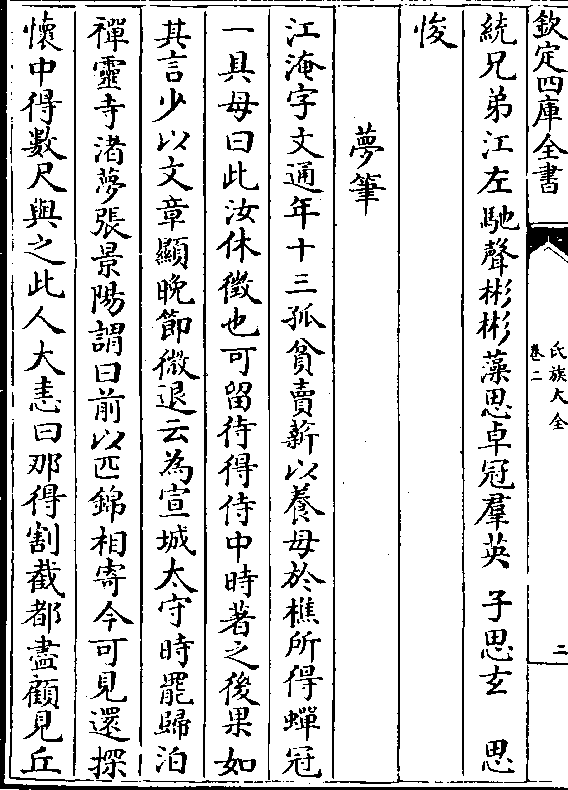 欽定四庫全書
氏族大全
卷二
二
統兄弟江左馳聲彬彬藻思卓冠羣英 子思玄 思
悛
夢筆
江淹字文通年十三孤貧賣薪以養母於樵所得蟬冠
一具母曰此汝休徵也可留待得侍中時著之後果如
其言少以文章顯晚節微退云為宣城太守時罷歸泊
禪靈寺渚夢張景陽謂曰前以匹錦相寄今可見還探
懷中得數尺與之此人大恚曰那得割截都盡顧見丘